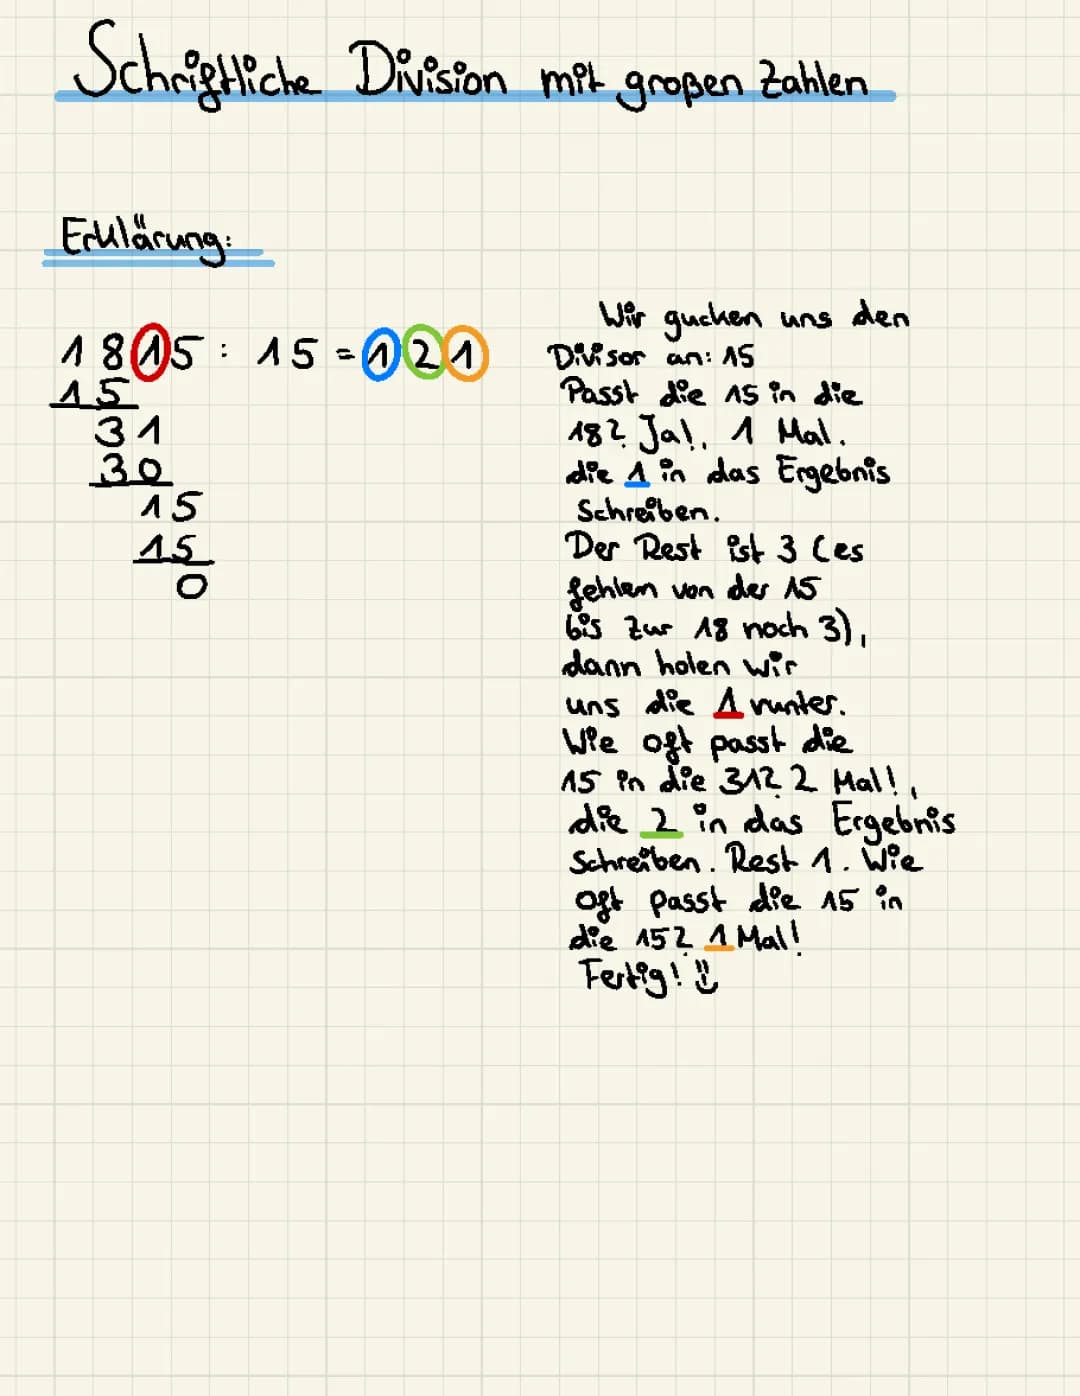 Schriftliche Division mit großen Zahlen
Erklärung:
1815 : 15 = 121
15
31
30
15
15
0
Wir gucken uns den
Divisor an: 15
Passt die 15 in die
18? Ja!, 1 Mal.
die 1 in das Ergebnis
Schreiben.
Der Rest ist 3 (es
fehlen von der 15
bis zur 18 noch 3),
dann holen wir
uns die 1 runter.
Wie oft passt die
15 in die 31? 2 Mal!,
die 2 in das Ergebnis
Schreiben. Rest 1. Wie
oft passt die 15 in
die 15? 1 Mal!
Fertig! ü